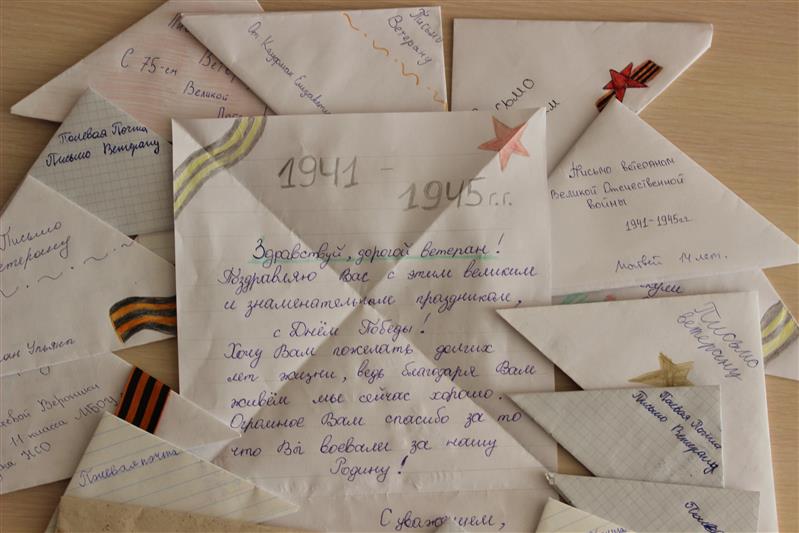 С 75-ем
Великой
От Кауфман Елизаветы
Письмо
Ветерану
Полевая Почта
Письмо Ветерану
Письмо ветеранам
Великой Отечественной
войны
1941-1945гг.
Матвей 14 лет.
1941 -
1945г.г.
Здравствуй, дорогой ветеран!
Поздравляю Вас с этим великим
и знаменательным праздником,
с Днём Победы!
Хочу Вам пожелать долгих
лет жизни, ведь благодаря Вам
живём мы сейчас хорошо.
Огромное Вам спасибо за то
что Вы воевали за нашу
Родину!
С уважением,
Письмо
ветерану
Письмо
ветерану
Полевая Почта
Письмо Ветерану
Вероники
11 класса МБОУ
НСО
Полевая почта